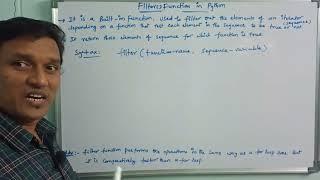 Filter() Function in Python
→ It is a Built-in function, used to filter out the elements of an iterator
depending on a function that test each element in the sequence to be true or not
(sequence)
It return those elements of sequence for which function is true.
Syntax: filter (function-name, sequence-variable)
:- filter function performs the operations in the same way as a for loop does but
it is comparatively faster than a for loop